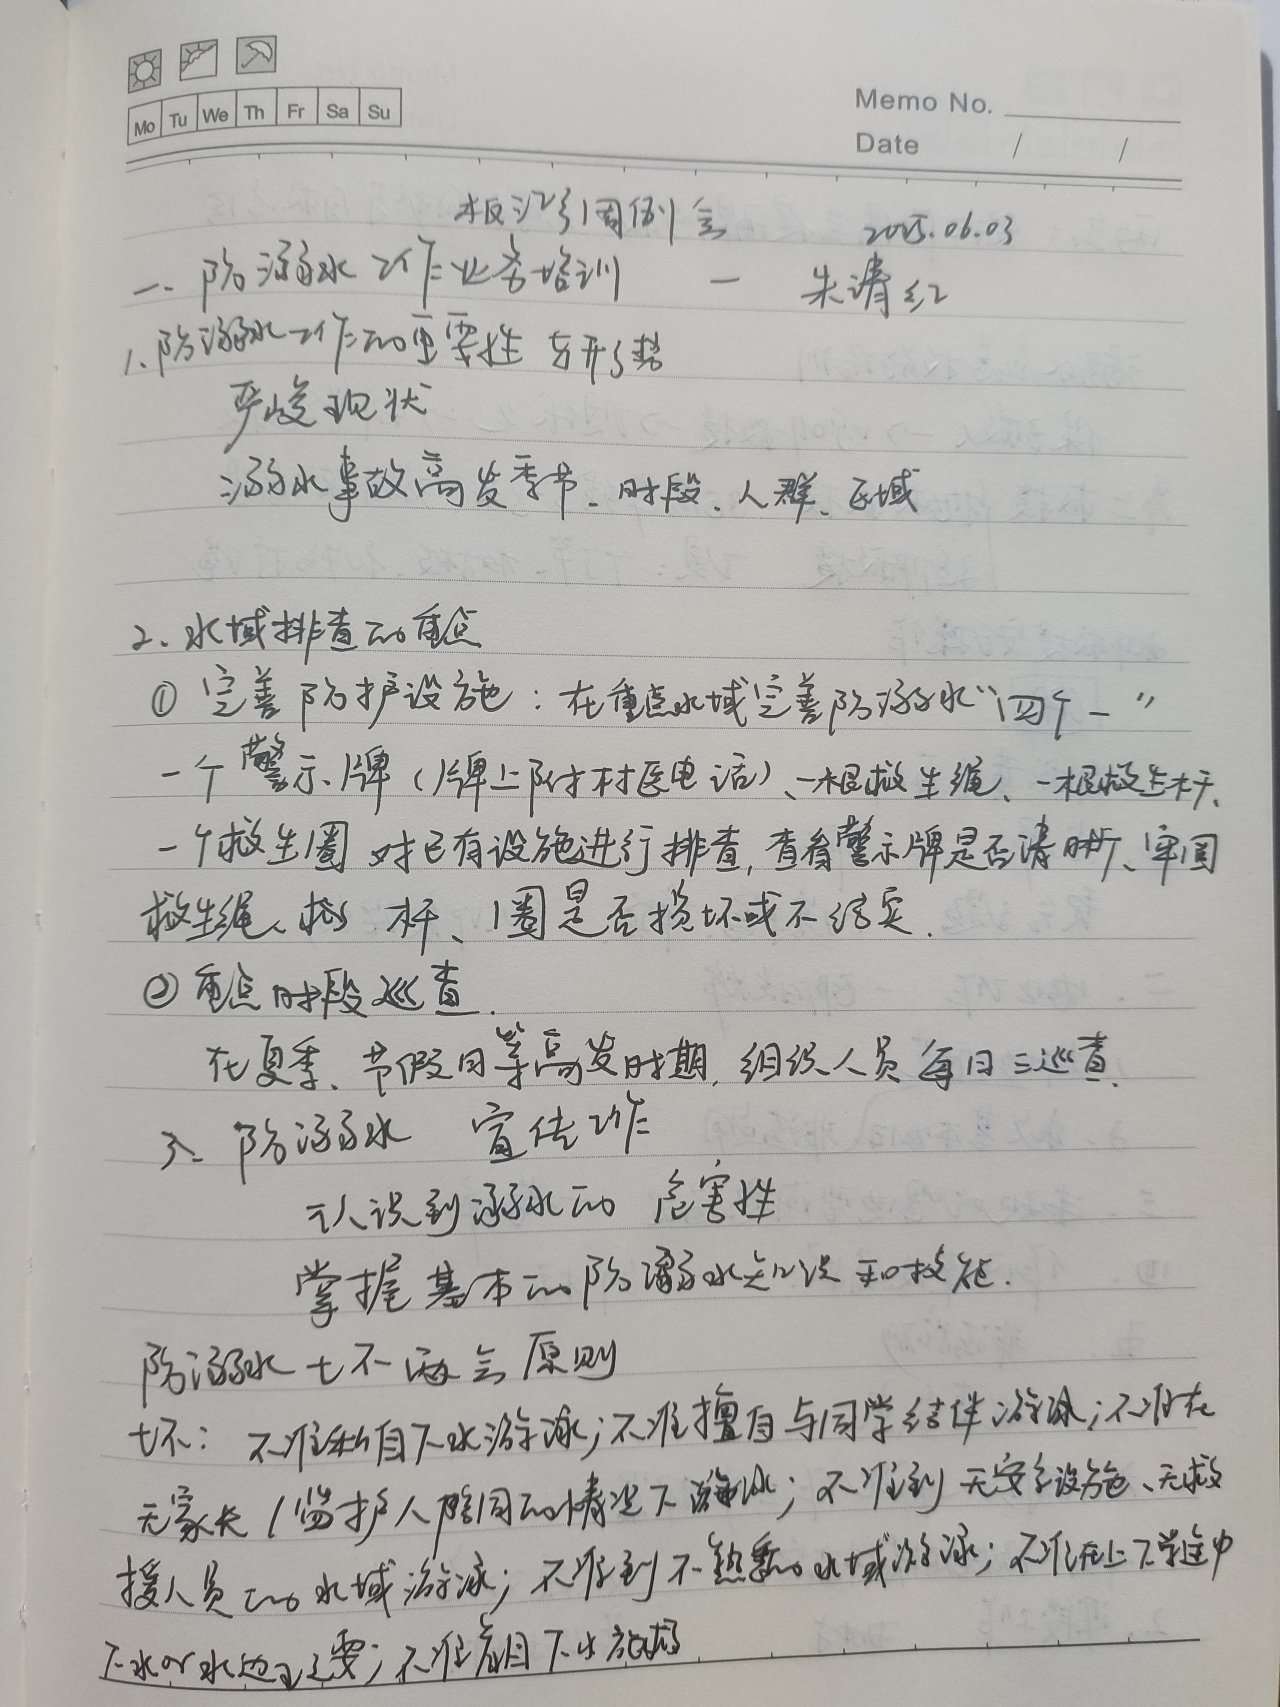 Mo Tu We Th Fr Sa Su
Memo No.
Date / /
周例会 2025.06.03
一、防溺水工作业务培训 — 朱涛红
1、防溺水工作的重要性与形势
严峻现状
溺水事故高发季节、时段、人群、区域
2、水域排查的重点
① 完善防护设施：在重点水域完善防溺水“四个一”
一个警示牌（牌上附村医电话）、一根救生绳、一根救生杆、
一个救生圈 对已有设施进行排查，查看警示牌是否清晰、牢固
救生绳、杆、圈是否损坏或不结实.
② 重点时段巡查.
在夏季、节假日等高发时期，组织人员每日三巡查.
3、防溺水 宣传工作
认识到溺水的 危害性
掌握基本的防溺水知识和技能.
防溺水七不两会原则
七不：不准私自下水游泳；不准擅自与同学结伴游泳；不准在
无家长/监护人陪同的情况下游泳；不准到无安全设施、无救
援人员的水域游泳；不准到不熟悉的水域游泳；不准在上下学途中
下水or水边玩耍；不准盲目下水施救